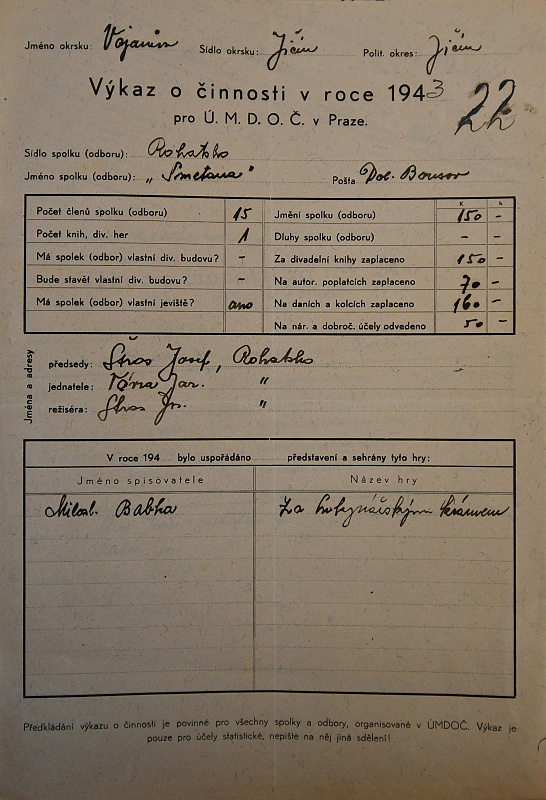 Jméno okrsku: Vojanův Sídlo okrsku: Jičín Polit. okres: Jičín
Výkaz o činnosti v roce 1943
22
pro Ú. M. D. O. Č. v Praze.
Sídlo spolku (odboru): Rohatsko
Jméno spolku (odboru): „Smetana" Pošta Dol. Bousov
K h
Počet členů spolku (odboru) 15 Jmění spolku (odboru) 150 -
Počet knih, div. her 1 Dluhy spolku (odboru) - -
Má spolek (odbor) vlastní div. budovu? - Za divadelní knihy zaplaceno 150 -
Bude stavět vlastní div. budovu? - Na autor. poplatcích zaplaceno 70 -
Má spolek (odbor) vlastní jeviště? ano Na daních a kolcích zaplaceno 160 -
Na nár. a dobroč. účely odvedeno 50 -
Jména a adresy
předsedy: Štros Josef, Rohatsko
jednatele: Jar. "
režiséra: Štros "
V roce 194 bylo uspořádáno představení a sehrány tyto hry:
Jméno spisovatele Název hry
Milosl. Babka Za kolynářským krámem
Předkládání výkazu o činnosti je povinné pro všechny spolky a odbory, organisované v ÚMDOČ. Výkaz je
pouze pro účely statistické, nepište na něj jiná sdělení!